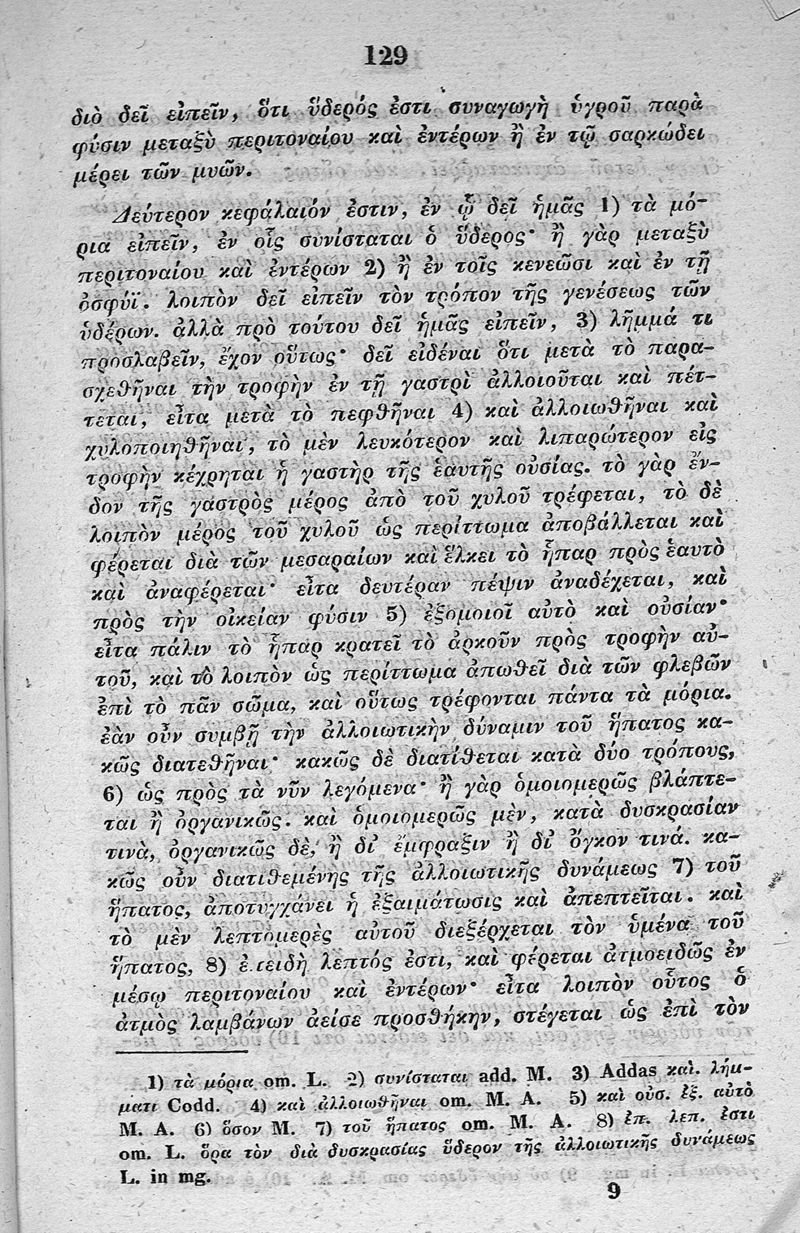 129
διὸ δεῖ εἰπεῖν, ὅτι ὕδερός ἐστι συναγωγὴ ὑγροῦ παρὰ
φύσιν μεταξὺ περιτοναίου καὶ ἐντέρων ἢ ἐν τῷ σαρκώδει
μέρει τῶν μυῶν.
Δεύτερον κεφάλαιόν ἐστιν, ἐν ᾧ δεῖ ἡμᾶς 1) τὰ μό-
ρια εἰπεῖν, ἐν οἷς συνίσταται ὁ ὕδερος· ἢ γὰρ μεταξὺ
περιτοναίου καὶ ἐντέρων 2) ἢ ἐν τοῖς κενεῶσι καὶ ἐν τῇ
ὀσφύϊ. λοιπὸν δεῖ εἰπεῖν τὸν τρόπον τῆς γενέσεως τῶν
ὑδέρων. ἀλλὰ πρὸ τούτου δεῖ ἡμᾶς εἰπεῖν, 3) λῆμμά τι
προσλαβεῖν, ἔχον οὕτως· δεῖ εἰδέναι ὅτι μετὰ τὸ παρα-
σχεθῆναι τὴν τροφὴν ἐν τῇ γαστρὶ ἀλλοιοῦται καὶ πέτ-
τεται, εἶτα μετὰ τὸ πεφθῆναι 4) καὶ ἀλλοιωθῆναι καὶ
χυλοποιηθῆναι, τὸ μὲν λευκότερον καὶ λιπαρώτερον εἰς
τροφὴν κέχρηται ἡ γαστὴρ τῆς ἑαυτῆς οὐσίας. τὸ γὰρ ἔν-
δον τῆς γαστρὸς μέρος ἀπὸ τοῦ χυλοῦ τρέφεται, τὸ δὲ
λοιπὸν μέρος τοῦ χυλοῦ ὡς περίττωμα ἀποβάλλεται καὶ
φέρεται διὰ τῶν μεσαραίων καὶ ἕλκει τὸ ἧπαρ πρὸς ἑαυτὸ
καὶ ἀναφέρεται· εἶτα δευτέραν πέψιν ἀναδέχεται, καὶ
πρὸς τὴν οἰκείαν φύσιν 5) ἐξομοιοῖ αὐτὸ καὶ οὐσίαν·
εἶτα πάλιν τὸ ἧπαρ κρατεῖ τὸ ἀρκοῦν πρὸς τροφὴν αὐ-
τοῦ, καὶ τὸ λοιπὸν ὡς περίττωμα ἀπωθεῖ διὰ τῶν φλεβῶν
ἐπὶ τὸ πᾶν σῶμα, καὶ οὕτως τρέφονται πάντα τὰ μόρια.
ἐὰν οὖν συμβῇ τὴν ἀλλοιωτικὴν δύναμιν τοῦ ἥπατος κα-
κῶς διατεθῆναι· κακῶς δὲ διατίθεται κατὰ δύο τρόπους,
6) ὡς πρὸς τὰ νῦν λεγόμενα· ἢ γὰρ ὁμοιομερῶς βλάπτε-
ται ἢ ὀργανικῶς. καὶ ὁμοιομερῶς μὲν, κατὰ δυσκρασίαν
τινὰ, ὀργανικῶς δὲ, ἢ δι᾽ ἔμφραξιν ἢ δι᾽ ὄγκον τινά. κα-
κῶς οὖν διατιθεμένης τῆς ἀλλοιωτικῆς δυνάμεως 7) τοῦ
ἥπατος, ἀποτυγχάνει ἡ ἐξαιμάτωσις καὶ ἀπεπτεῖται. καὶ
τὸ μὲν λεπτομερὲς αὐτοῦ διεξέρχεται τὸν ὑμένα τοῦ
ἥπατος, 8) ἐπειδὴ λεπτός ἐστι, καὶ φέρεται ἀτμοειδῶς ἐν
μέσῳ περιτοναίου καὶ ἐντέρων· εἶτα λοιπὸν οὗτος ὁ
ἀτμὸς λαμβάνων ἀείσε προσθήκην, στέγεται ὡς ἐπὶ τὸν
1) τὰ μόρια om. L. 2) συνίσταται add. M. 3) Addas καὶ. λήμ-
ματι Codd. 4) καὶ ἀλλοιωθῆναι om. M. A. 5) καὶ οὐσ. ἐξ. αὐτὸ
M. A. 6) ὅσον M. 7) τοῦ ἥπατος om. M. A. 8) ἐπ. λεπ. ἐστι
om. L. ὅρα τὸν διὰ δυσκρασίας ὕδερον τῆς ἀλλοιωτικῆς δυνάμεως
L. in mg.
9